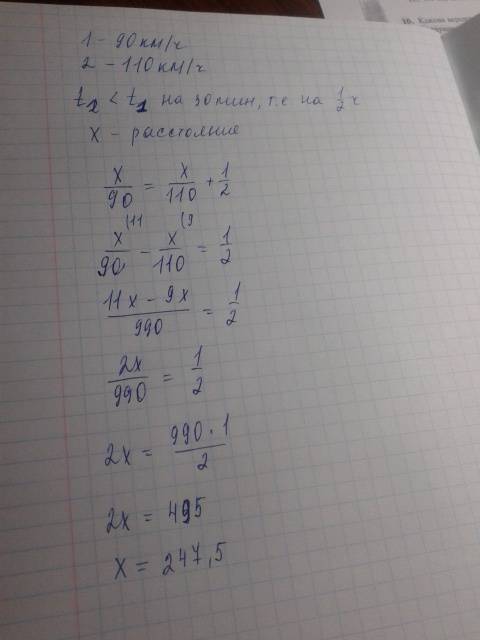 10. Какова
1 - 90 км/ч
2 - 110 км/ч
t₂ < t₁ на 30 мин, т.е на 1/2 ч
x - расстояние
x/90 = x/110 + 1/2
x/90 (11 - x/110 (9 = 1/2
(11x - 9x)/990 = 1/2
2x/990 = 1/2
2x = (990 · 1)/2
2x = 495
x = 247,5